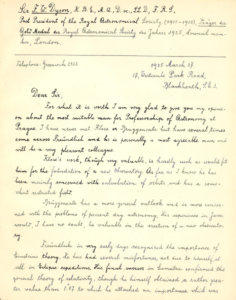 Sir F. W. Dyson, K.B.E., M.A., D.Sc., LL.D., F.R.S.
Past President of the Royal Astronomical Society (1911-1913),
Gold Medal des Royal Astronomical Society des Jahres 1925,
London.
Telephone: Greenwich
1938 March 17
Westcombe Park Road,
Blackheath, S.E.3
Dear Sir,
For what it is worth I am very glad to give you my opinion
about the most suitable man for Professorship of Astronomy at
Prague. I have never met Klose or Brüggencate but have several times
come across Freundlich and he is personally a most agreeable man and
will be a very pleasant colleague.
Klose's work, though very valuable, is hardly such as would fit
him for the foundation of a new Observatory. As far as I know he has
been mainly concerned with calculation of orbits and has a
somewhat restricted field.
Brüggencate has a more general outlook and is more concerned
with the problems of present day astronomy. His experience in Java
would, I have no doubt, be valuable in the creation of a new observatory.
Freundlich in very early days recognized the importance of
Einsteins theory. He has had several misfortunes, not due to himself at
all, on Eclipse expeditions. His finest success in Sumatra confirmed the
general theory of relativity, though he himself obtained a rather greater
value than 1".75 to which he attached an importance which was